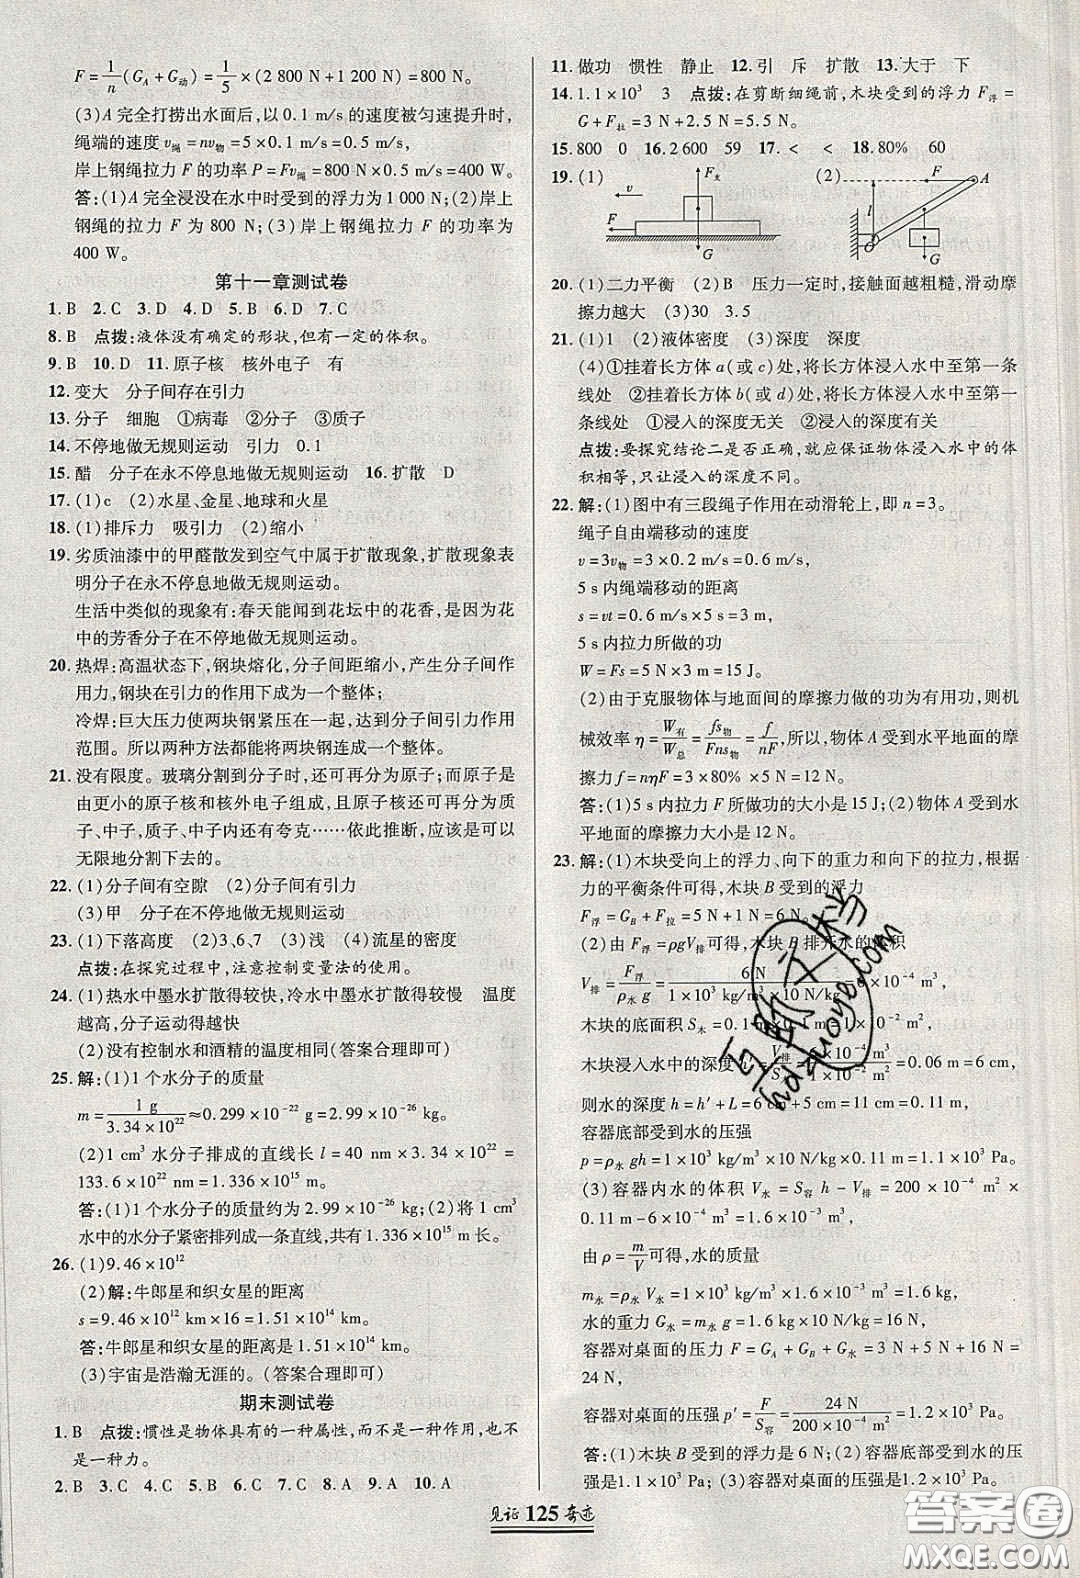 F=1/n(G_A+G_动)=1/5×(2 800 N+1 200 N)=800 N。
(3)A完全打捞出水面后,以0.1 m/s的速度被匀速提升时,
绳端的速度 v_绳=nv_物=5×0.1 m/s=0.5 m/s,
岸上钢绳拉力F的功率P=Fv_绳=800 N×0.5 m/s=400 W。
答:(1)A完全浸没在水中时受到的浮力为1 000 N;(2)岸上
钢绳的拉力F为800 N;(3)岸上钢绳拉力F的功率为
400 W。
第十一章测试卷
1. B 2. C 3. D 4. D 5. D 6. D 7. C
8. B 点拨:液体没有确定的形状,但有一定的体积。
9. B 10. D 11. 原子核 核外电子 有
12. 变大 分子间存在引力
13. 分子 细胞 ①病毒 ②分子 ③质子
14. 不停地做无规则运动 引力 0.1
15. 醋 分子在永不停息地做无规则运动 16. 扩散 D
17. (1)c (2)水星、金星、地球和火星
18. (1)排斥力 吸引力 (2)缩小
19. 劣质油漆中的甲醛散发到空气中属于扩散现象,扩散现象表
明分子在永不停息地做无规则运动。
生活中类似的现象有:春天能闻到花坛中的花香,是因为花
中的芳香分子在不停地做无规则运动。
20. 热焊:高温状态下,钢块熔化,分子间距缩小,产生分子间作
用力,钢块在引力的作用下成为一个整体;
冷焊:巨大压力使两块钢紧压在一起,达到分子间引力作用
范围。所以两种方法都能将两块钢连成一个整体。
21. 没有限度。玻璃分割到分子时,还可再分为原子;而原子又
由更小的原子核和核外电子组成,且原子核还可再分为质
子、中子,质子、中子内还有夸克……依此推断,应该是可以
无限地分割下去的。
22. (1)分子间有空隙 (2)分子间有引力
(3)甲 分子在不停地做无规则运动
23. (1)下落高度 (2)3、6、7 (3)浅 (4)流星的密度
点拨:在探究过程中,注意控制变量法的使用。
24. (1)热水中墨水扩散得较快,冷水中墨水扩散得较慢 温度
越高,分子运动得越快
(2)没有控制水和酒精的温度相同(答案合理即可)
25. 解:(1)1个水分子的质量
m=1 g/3.34×10²²≈0.299×10⁻²² g=2.99×10⁻²⁶ kg。
(2)1 cm³水分子排成的直线长 l=40 nm×3.34×10²²=
133.6×10²² nm=1.336×10¹⁵ m。
答:(1)1个水分子的质量约为2.99×10⁻²⁶ kg;(2)将1 cm³
水中的水分子紧密排列成一条直线,共有1.336×10¹⁵ m长。
26. (1)9.46×10¹²
(2)解:牛郎星和织女星的距离
s=9.46×10¹² km×16=1.51×10¹⁴ km。
答:牛郎星和织女星的距离是1.51×10¹⁴ km。
(3)宇宙是浩瀚无涯的。(答案合理即可)
期末测试卷
1. B 点拨:惯性是物体具有的一种属性,而不是一种作用,也不
是一种力。
2. B 3. C 4. C 5. C 6. D 7. C 8. A 9. A 10. A
11. 做功 惯性 静止 12. 引 斥 扩散 13. 大于 下
14. 1.1×10³ 3 点拨:在剪断细绳前,木块受到的浮力F_浮=
G+F_拉=3 N+2.5 N=5.5 N。
15. 800 0 16. 2 600 59 17. < < 18. 80% 60
19. (1) (2)
v F_支 F G l F A G
20. (1)二力平衡 (2)B 压力一定时,接触面越粗糙,滑动摩
擦力越大 (3)30 3.5
21. (1)1 (2)液体密度 (3)深度 深度
(4)①挂着长方体a(或c)处,将长方体浸入水中至第一条
线处 ②挂着长方体b(或d)处,将长方体浸入水中至第一
条线处 ①浸入的深度无关 ②浸入的深度有关
点拨:要探究结论二是否正确,就应保证物体浸入水中的体
积相等,只让浸入的深度不同。
22. 解:(1)图中有三段绳子作用在动滑轮上,即n=3。
绳子自由端移动的速度
v=3v_物=3×0.2 m/s=0.6 m/s,
5 s内绳端移动的距离
s=vt=0.6 m/s×5 s=3 m,
5 s内拉力所做的功
W=Fs=5 N×3 m=15 J。
(2)由于克服物体与地面间的摩擦力做的功为有用功,则机
械效率η=W_有/W_总=fs_物/Fns_物=f/nF,所以,物体A受到水平地面的摩
擦力f=nηF=3×80%×5 N=12 N。
答:(1)5 s内拉力F所做功的大小是15 J;(2)物体A受到水
平地面的摩擦力大小是12 N。
23. 解:(1)木块受向上的浮力、向下的重力和向下的拉力,根据
力的平衡条件可得,木块B受到的浮力
F_浮=G_B+F_拉=5 N+1 N=6 N。
(2)由F_浮=ρgV_排可得,木块B排开水的体积
V_排=F_浮/ρ_水 g=6 N/1×10³ kg/m³×10 N/kg=6×10⁻⁴ m³,
木块的底面积S_木=0.1 m×0.1 m=1×10⁻² m²,
木块浸入水中的深度h′=V_排/S_木=6×10⁻⁴ m³/1×10⁻² m²=0.06 m=6 cm,
则水的深度h=h′+L=6 cm+5 cm=11 cm=0.11 m,
容器底部受到水的压强
p=ρ_水 gh=1×10³ kg/m³×10 N/kg×0.11 m=1.1×10³ Pa。
(3)容器内水的体积V_水=S_容 h-V_排=200×10⁻⁴ m²×
0.11 m-6×10⁻⁴ m³=1.6×10⁻³ m³,
由ρ=m/V可得,水的质量
m_水=ρ_水V_水=1×10³ kg/m³×1.6×10⁻³ m³=1.6 kg,
水的重力G_水=m_水 g=1.6 kg×10 N/kg=16 N,
容器对桌面的压力F=G_A+G_B+G_水=3 N+5 N+16 N=
24 N,
容器对桌面的压强p′=F/S_容=24 N/200×10⁻⁴ m²=1.2×10³ Pa。
答:(1)木块B受到的浮力是6 N;(2)容器底部受到水的压
强是1.1×10³ Pa;(3)容器对桌面的压强是1.2×10³ Pa。
见证 125 奇迹
答案圈
MXQE.COM